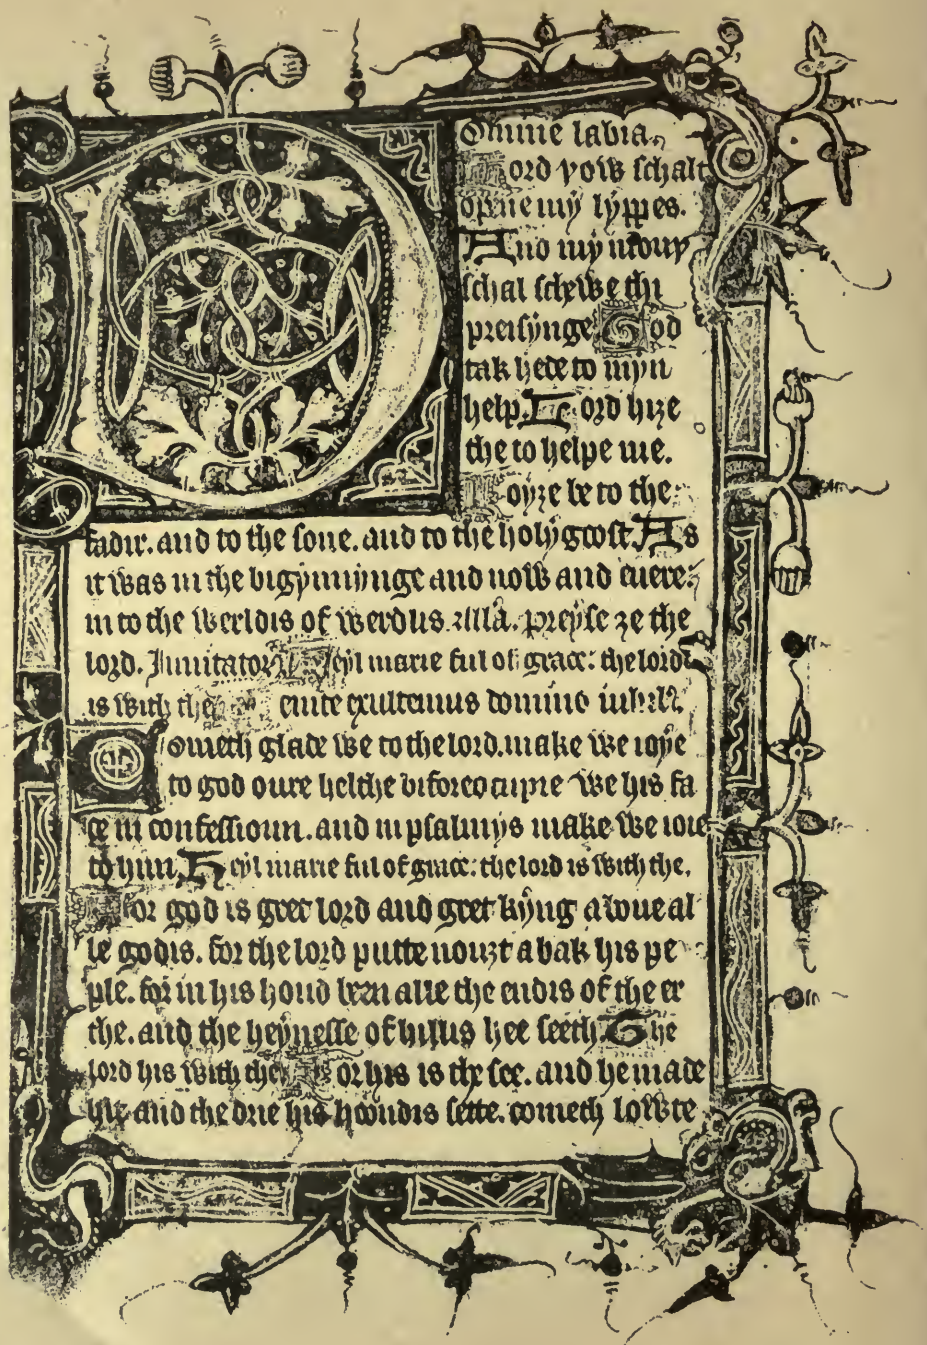 Domine labia.
Lord þow schalt
opene my lyppes.
And my mouþ
schal schewe thi
preisynge God
tak hede to myn
help. Lord hiȝe
the to helpe me.
Ioyȝe be to the
fadir. and to the sone. and to the holy gost. As
it was in the bigynnynge and now and euere
in to the werldis of werdlis. Preyse ȝe the
lord. Inuitator Heyl marie ful of grace: the lord
is with the Uenite exultemus domino
Cometh glade we to the lord. make we ioye
to god oure helthe bifore ocupie we his fa
ce in confessioun. and in psalmys make we ioie
to him. Heyl marie ful of grace: the lord is with the.
For god is gret lord and gret kyng aboue al
le godis. for the lord putte nouȝt abak his pe
ple. for in his hond ben alle the endis of the er
the. and the heynesse of hillus hee seeth. The
lord his with the For his is the see. and he made
hit and the drie his hondis sette. cometh lowte